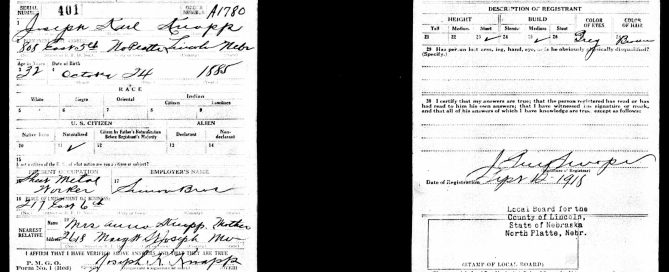 SERIAL NUMBER 401
ORDER NUMBER A1780
Joseph Karl Knapp
808 East 5th No Platte Lincoln Nebr
Age in Years
Date of Birth
32 October 24 1885
RACE
White Negro Oriental Indian
Citizen Noncitizen
5 6 7 8 9
U. S. CITIZEN ALIEN
Native Born Naturalized Citizen by Father's Naturalization Before Registrant's Majority Declarant Non-declarant
10 11 12 13 14
15
PRESENT OCCUPATION EMPLOYER'S NAME
Sheet Metal
Worker Simon Bros
217 East 6th
NEAREST RELATIVE
Name Mrs Anna Knapp, Mother
Address St Joseph Mo
I AFFIRM THAT I HAVE VERIFIED ABOVE ANSWERS AND THAT THEY ARE TRUE
P. M. G. O.
Form No. 1 (Red) Joseph K. Knapp
DESCRIPTION OF REGISTRANT
HEIGHT BUILD COLOR OF EYES COLOR OF HAIR
Tall Medium Short Slender Medium Stout
21 22 23 24 25 26 27 28
Grey Brown
29 Has person lost arm, leg, hand, eye, or is he obviously physically disqualified?
(Specify.)
30 I certify that my answers are true; that the person registered has read or has
had read to him his own answers; that I have witnessed his signature or mark,
and that all of his answers of which I have knowledge are true, except as follows:
Date of Registration Sept 12 1918
Local Board for the
County of Lincoln,
State of Nebraska
North Platte, Nebr.
(STAMP OF LOCAL BOARD)